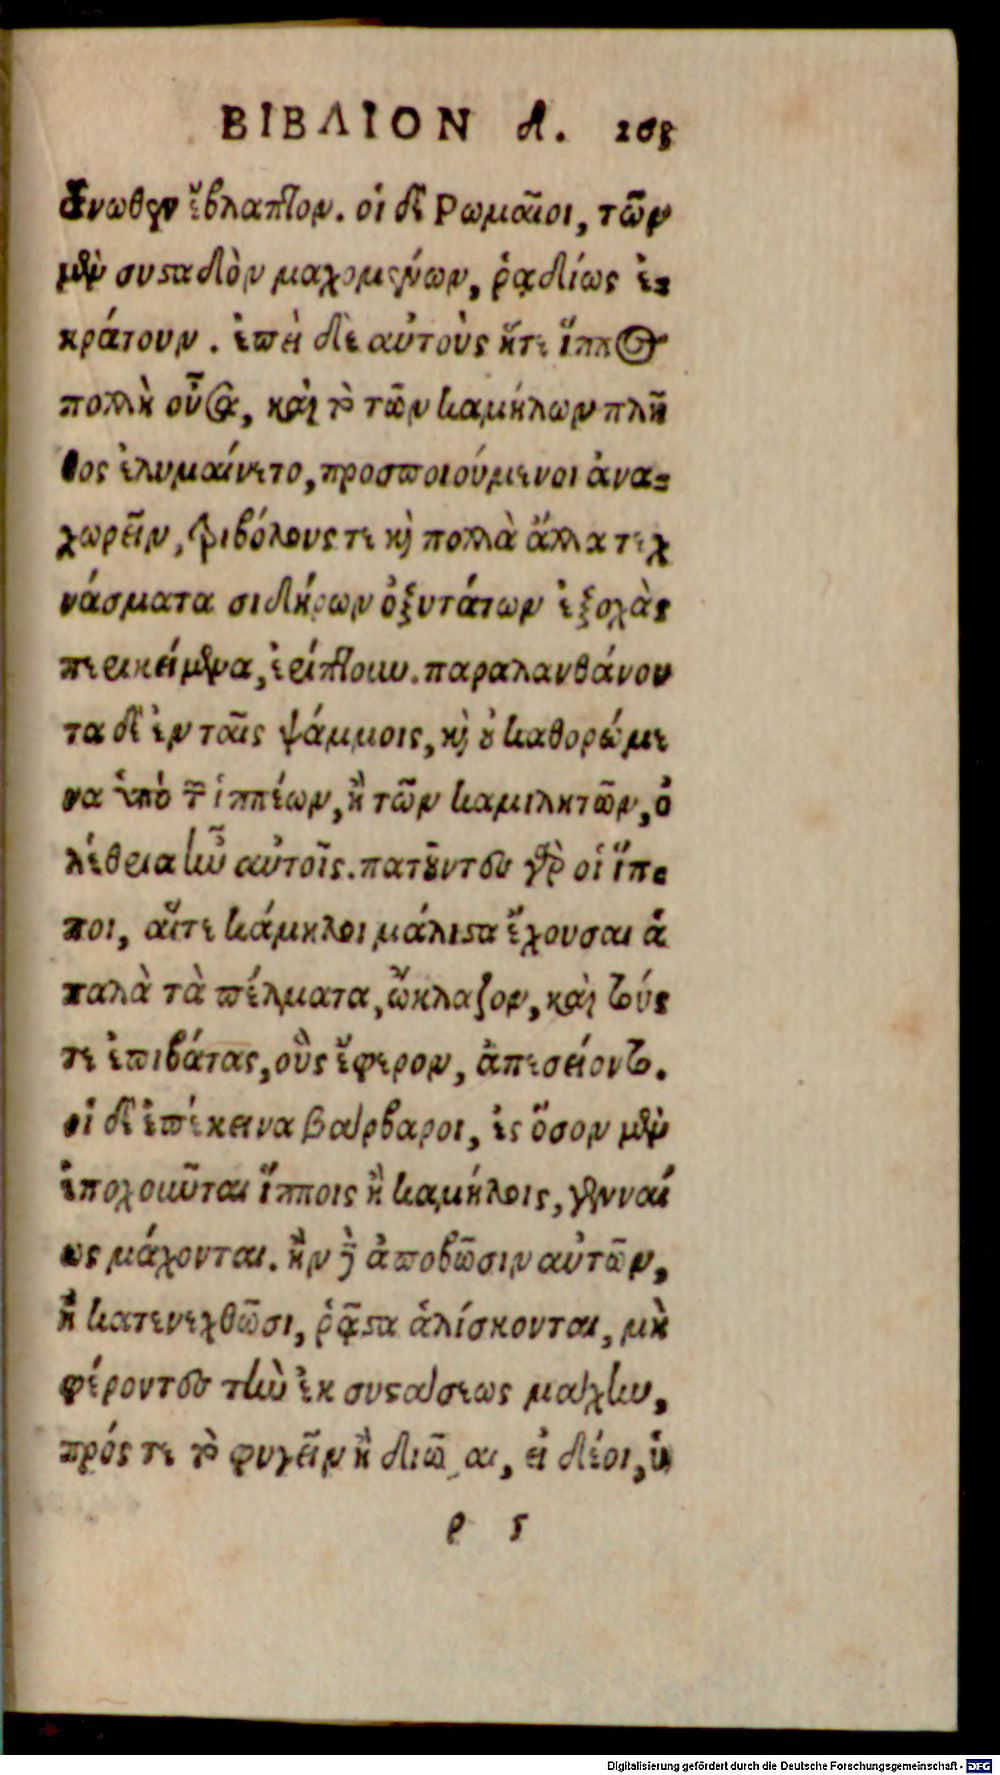 ΒΙΒΛΙΟΝ δ. 268
ἄνωθεν ἔβλαπτον. οἱ δὲ Ρωμαῖοι, τῶν
μὲν συσταδὸν μαχομένων, ῥᾳδίως ἐ-
κράτουν. ἐπεὶ δὲ αὐτοὺς ἥτε ἵππος
πολλὴ οὖσα, καὶ τὸ τῶν καμήλων πλῆ
θος ἐλυμαίνετο, προσποιούμενοι ἀνα-
χωρεῖν, τριβόλους τε καὶ πολλὰ ἄλλα τεχ
νάσματα σιδήρων ὀξυτάτων ἐξοχὰς
περικείμενα, ἐρίπτουν. παραλανθάνον
τα δὲ ἐν ταῖς ψάμμοις, καὶ οὐ καθορώμε
να ὑπὸ τῶν ἱππέων, ἢ τῶν καμιλητῶν, ὀ
λέθρια ἦν αὐτοῖς. πατοῦντες γὰρ οἱ ἵπ-
ποι, αἵτε κάμηλοι μάλιστα ἔχουσαι ἁ
παλὰ τὰ πέλματα, ὤκλαζον, καὶ τούς
τε ἐπιβάτας, οὓς ἔφερον, ἀπεσείοντο.
οἱ δὲ ἐπέκεινα βάρβαροι, ἐς ὅσον μὲν
ἐποχοῦνται ἵπποις ἢ καμήλοις, γενναί
ως μάχονται. ἢν δὲ ἀποβῶσιν αὐτῶν,
ἢ κατενεχθῶσι, ῥᾷστα ἁλίσκονται, μὴ
φέροντες τὴν ἐκ συστάσεως μάχην,
πρός τε τὸ φυγεῖν ἢ διῶξαι, εἰ δέοι, ὑ
ρ 5
Digitalisierung gefördert durch die Deutsche Forschungsgemeinschaft - DFG